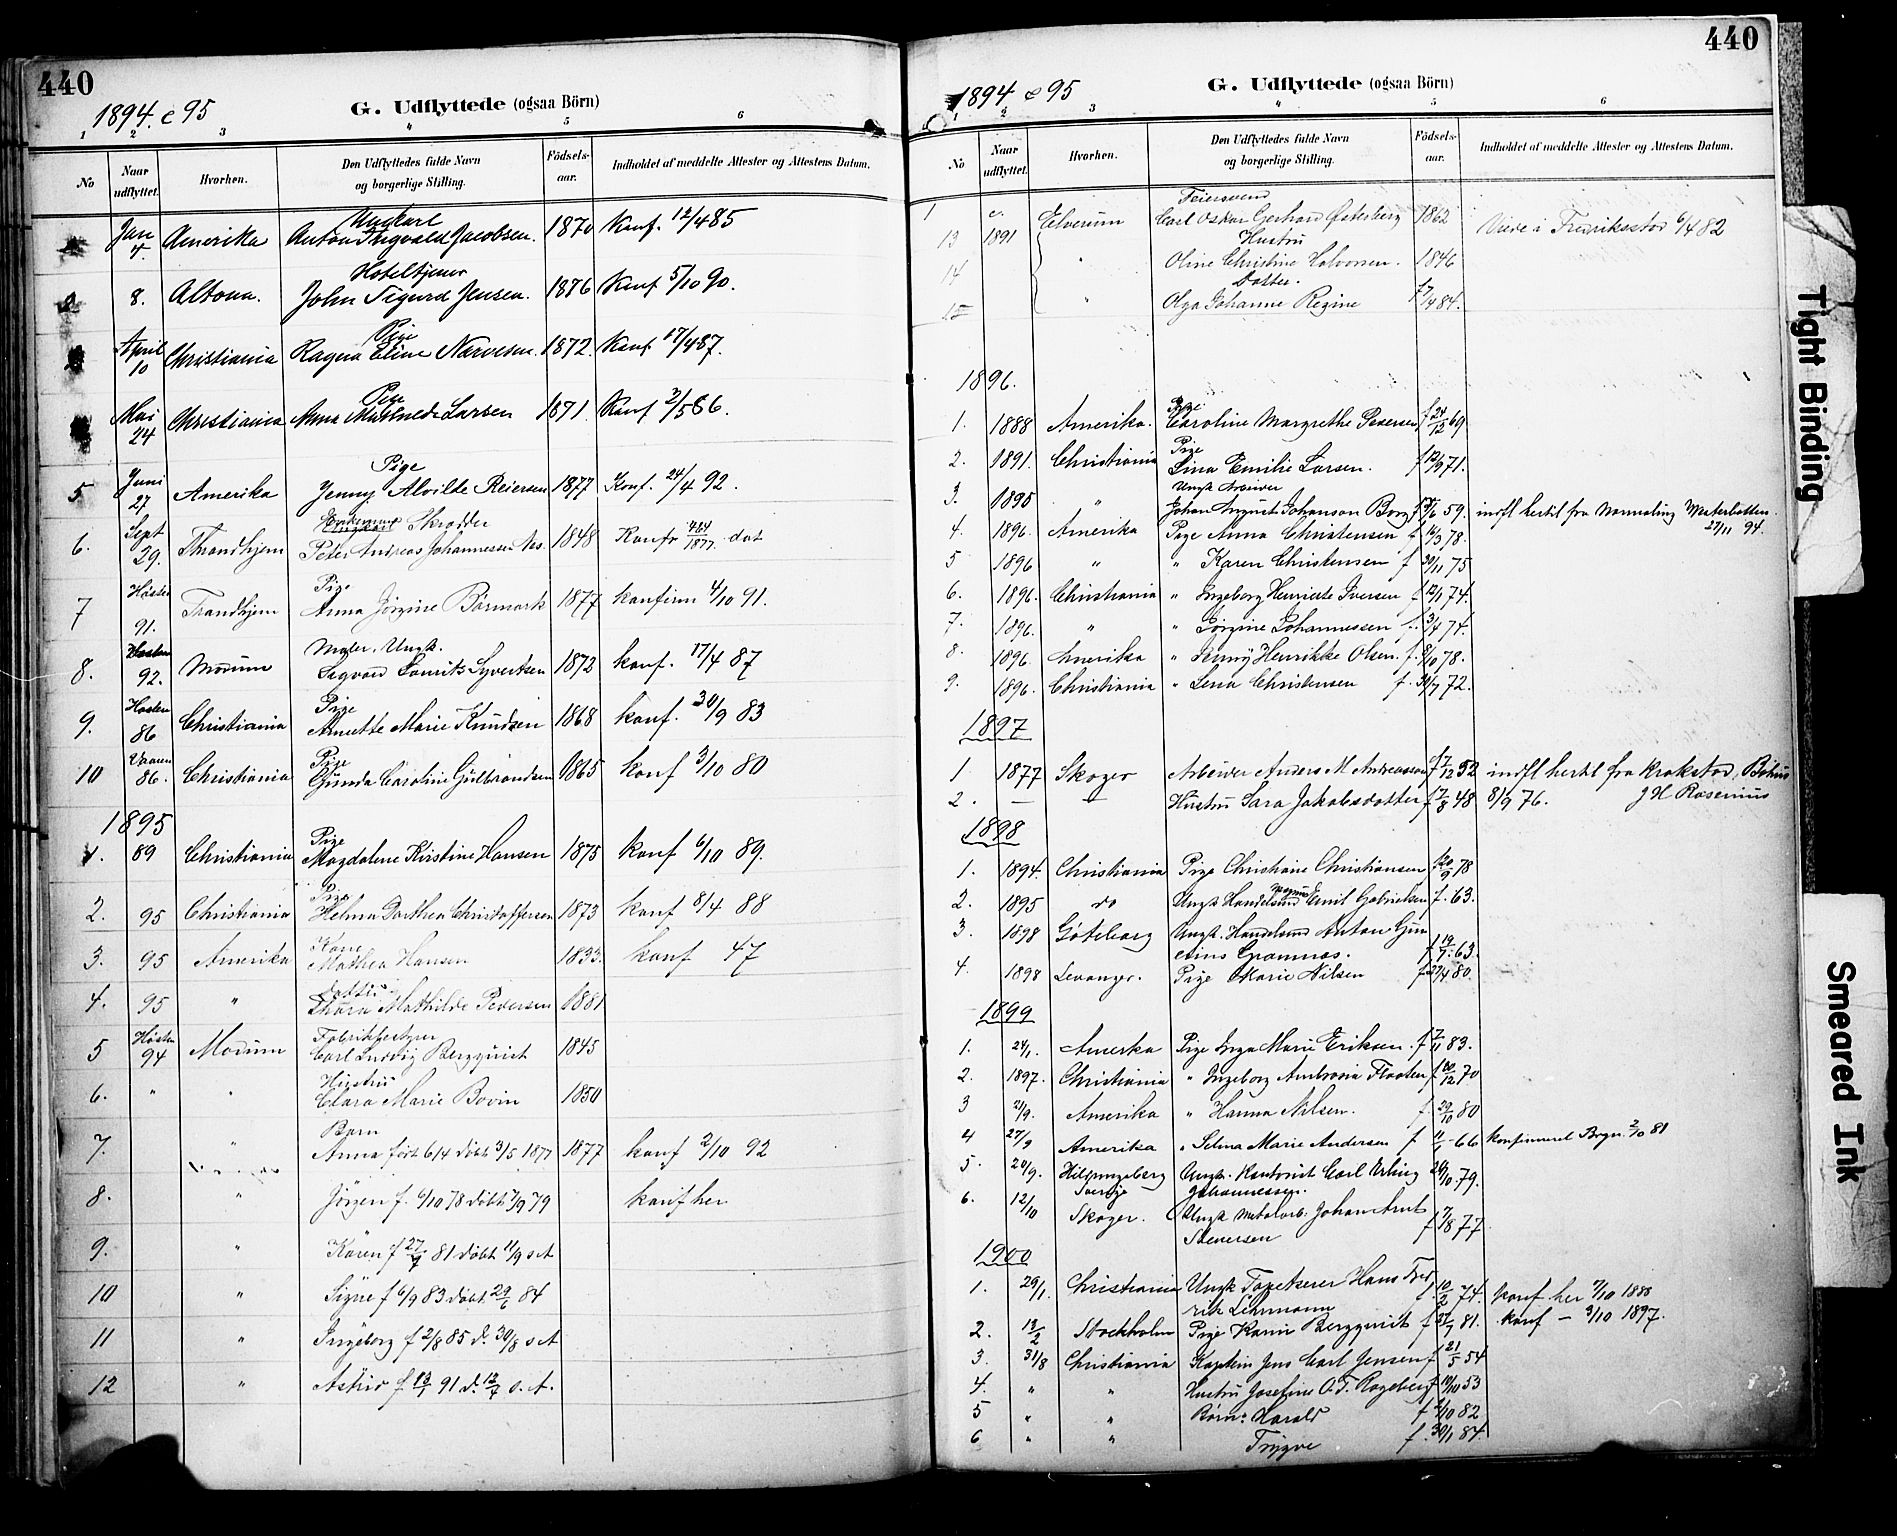 440
1894. & 95
G. Udflyttede (ogsaa Börn)
1 2 3 4 5 6
No
Naar udflyttet.
Hvorhen.
Den Udflyttedes fulde Navn og borgerlige Stilling.
Födsels-aar.
Indholdet af meddelte Attester og Attestens Datum.
Jan 4. Amerika Ungkarl Anton Ingvald Jacobsen. 1870 Konf. 12/4 85
2 8. Altona. Hoteltjener John Sigurd Jensen. 1876 Konf 5/10 90.
April 10 Christiania Pige Ragna Eline Narvesen. 1872. Konf 17/4 87.
Mai 24 Christiania Pige Anna Larsen 1871. Konf 2/5 86.
5 Juni 27 Amerika Pige Jenny Alvilde Reiersen 1877 Konf. 24/4 92.
6. Sept 29. Throndhjem Enkemand Skrædder Peter Andreas Johannesen Næs. 1848 Konfr 1877.
7 Høsten 91. Trondhjem Pige Anna Jörgine Börmark 1877 konfirm 4/10 91.
8. Høsten 92. Modum Maler, Ungk. Sigvard Lauritz Syvertsen 1872 konf. 17/4 87
9. Høsten 86 Christiania Pige Annette Marie Knudsen 1868 konf. 30/9 83
10 Vaaren 86. Christiania Pige Gunda Caroline Gulbrandsen 1865 konf 3/10 80
1895
1. 89 Christiania Pige Magdalene Kirstine Hansen 1875 konf 6/10 89.
2. 95 Christiania Pige Helma Dorthea Christoffersen 1873 konf 8/4 88
3. 95 Amerika Kone Mathea Hansen 1833. konf 47
4. 95 " datter Thora Mathilde Pedersen 1881
5 Høsten 94 Modum Fabrikbestyrer Carl Ludvig Bergquist 1845
6. " " Hustru Clara Marie Bovin 1850
7. " Barn Anna født 6/4 døbt 3/5 1877 1877 konf 2/10 92
8. " Jörgen f. 6/10 78 döbt 7/9 79 konf her
9. " Karen f 27/7 81 döbt 11/9 s A
10 " Signe f 6/9 83 döbt 29/6 84
11 " Ingeborg f 2/8 85 d. 30/8 s A
12 " Astrid f 13/1 91 d. 12/7 s. A.
440
1894 & 95
G. Udflyttede (ogsaa Börn)
1 2 3 4 5 6
No
Naar udflyttet.
Hvorhen.
Den Udflyttedes fulde Navn og borgerlige Stilling.
Födsels-aar.
Indholdet af meddelte Attester og Attestens Datum.
13 1891 Elverum Feiersvend Carl Oskar Gerhard Østerberg 1862 Viede i Fredriksstad 6/4 82
14 " Hustru Oline Christine Halvorsen. 1846
15 " Datter. Olga Johanne Regine 7/4 84.
1896.
1. 1888 Amerika. Pige Caroline Margrethe Pedersen f 24/12 69
2. 1891. Christiania Pige Lina Emilie Larsen. f 12/9 71.
3. 1895 " Ungk Arbeider Johan August Johanson Borg f 3/6 59. indfl hertil fra Nordmaling Westerbotten. 27/11 94.
4. 1896. Amerika Pige Anna Christensen f 16/3 78.
5 1896 " " Karen Christensen f 30/11 75
6. 1896. Christiania " Ingeborg Henriette Iversen f 12/1 74.
7. 1896. " " Jörgine Johannessen f. 3/4 74.
8. 1896. Amerika " Jenny Henrikke Olsen. f. 8/10 78.
9. 1896. Christiania " Lena Christensen f. 30/7 72.
1897
1 1877 Skoger Arbeider Anders M Andreasson f 7/12 52 indfl hertil fra Krokstad, Båhus
2. — — Hustru Sara Jakobsdotter f 7/8 48 8/9 76. J H Rosenius
1898
1. 1894. Christiania Pige Christiane Christiansen f 20/9 78
2. 1895 do Ungk Handelsmd Magnus Emil Gabrielsen f. 63.
3. 1898 Göteborg Ungk. Handelsmd Anton Gun
erius Gramnæs. f 19/7. 63.
4. 1898 Levanger. Pige Marie Nilsen f 27/4 80.
1899
1. 24/1. Amerika Pige Inga Marie Eriksen. f 7/11 83.
2. 1897. Christiania " Ingeborg Ambrosia Flaaten f 20/12 70
3 21/9. Amerika " Hanna Nilsen. f. 29/10 80
4 27/9 Amerika " Selma Marie Andersen f 11/1 66 konfirmeret Bragn. 2/10 81
5. 20/9. Helsingeborg Sverige Ungk. Kontorist Carl Erling Johannessen. 20/10 79.
6. 12/10 Skoger. Ungk Metalarb. Johan Arnt
Stenersen f 7/8 77
1900
1. 29/1. Christiania Ungk Tapetserer Hans Fred
rik Lehrmann f 10/2 74. konf her 7/10 1888
2. 13/2 Stockholm Pige Karin Bergquist f 27/7 81. konf — 3/10 1897.
3. 31/8 Christiania Kaptein Jens Carl Jensen f 21/5 54
4. " " Hustru Josefine O. F. Rogeberg f 19/10 53
5 " " Børn: Harald f 2/10 82
6 " " Trygve f. 30/1 84.
Tight Binding
Smeared Ink